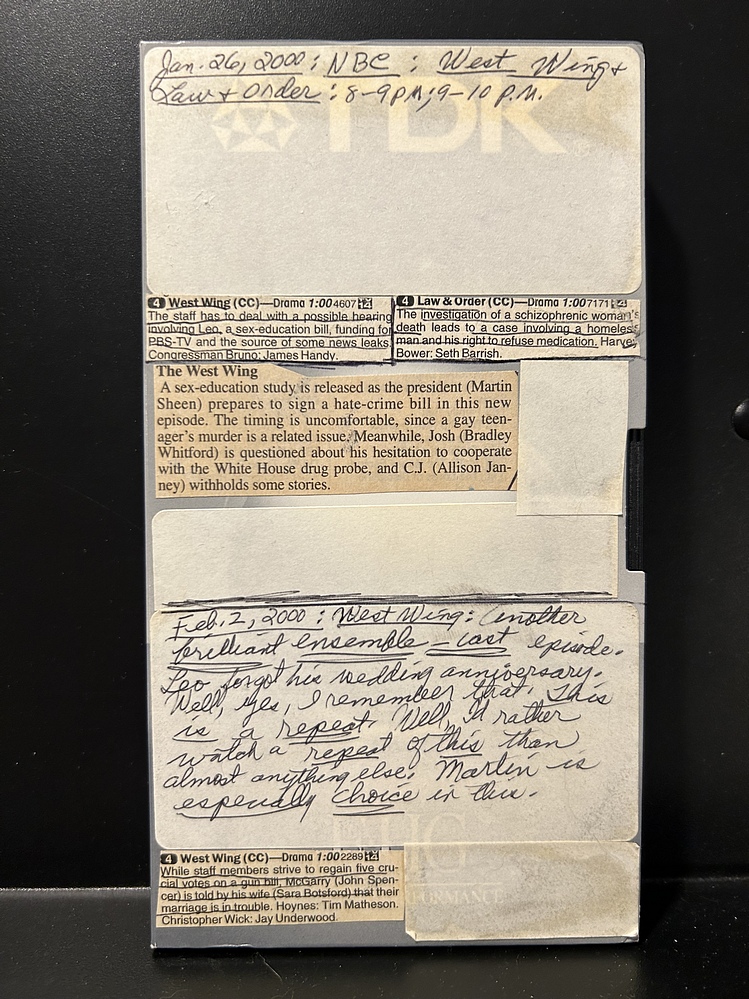 Jan. 26, 2000 : NBC : West Wing +
Law + Order : 8-9 P.M; 9-10 P.M.
TDK
4 West Wing (CC)—Drama 1:00 4607 14
The staff has to deal with a possible hearing
involving Leo, a sex-education bill, funding for
PBS-TV and the source of some news leaks.
Congressman Bruno: James Handy.
4 Law & Order (CC)—Drama 1:00 7171 14
The investigation of a schizophrenic woman's
death leads to a case involving a homeless
man and his right to refuse medication. Harvey
Bower: Seth Barrish.
The West Wing
A sex-education study is released as the president (Martin
Sheen) prepares to sign a hate-crime bill in this new
episode. The timing is uncomfortable, since a gay teen-
ager's murder is a related issue. Meanwhile, Josh (Bradley
Whitford) is questioned about his hesitation to cooperate
with the White House drug probe, and C.J. (Allison Jan-
ney) withholds some stories.
Feb. 2, 2000 : West Wing : Another
brilliant ensemble-cast episode.
Leo forgot his wedding anniversary.
Well, yes, I remember that. This
is a repeat. Well, I'd rather
watch a repeat of this than
almost anything else. Martin is
especially choice in this.
HG
4 West Wing (CC)—Drama 1:00 2289 14
While staff members strive to regain five cru-
cial votes on a gun bill, McGarry (John Spen-
cer) is told by his wife (Sara Botsford) that their
marriage is in trouble. Hoynes: Tim Matheson.
Christopher Wick: Jay Underwood.